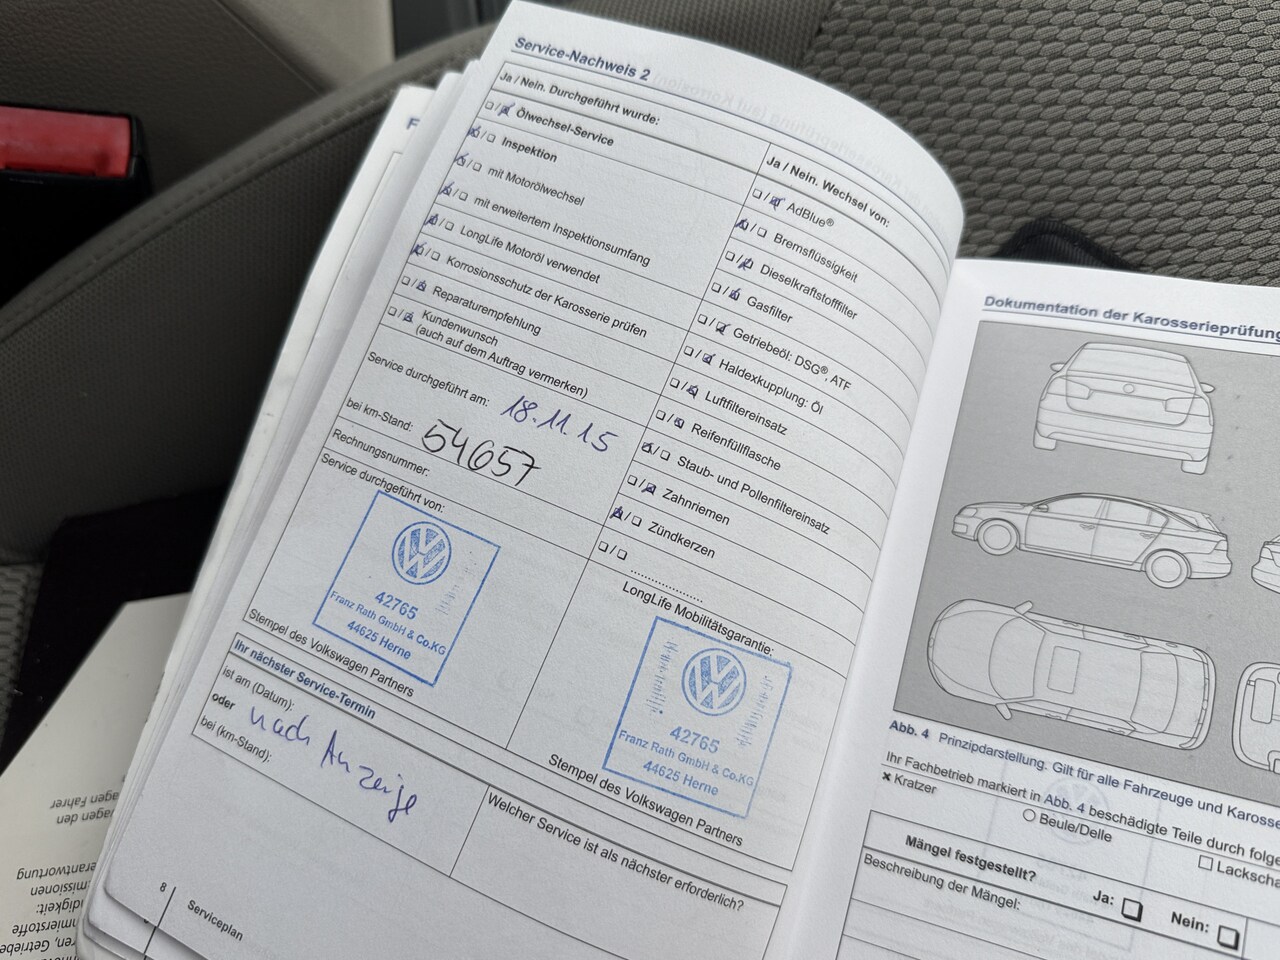 Service-Nachweis 2
Ja / Nein. Durchgeführt wurde:
Ölwechsel-Service
Inspektion
mit Motorölwechsel
mit erweitertem Inspektionsumfang
LongLife Motoröl verwendet
Korrosionsschutz der Karosserie prüfen
Reparaturempfehlung
Kundenwunsch
(auch auf dem Auftrag vermerken)
Service durchgeführt am: 18.11.15
bei km-Stand: 54657
Rechnungsnummer:
Service durchgeführt von:
42765
Franz Rath GmbH & Co.KG
44625 Herne
Stempel des Volkswagen Partners
Ja / Nein. Wechsel von:
AdBlue®
Bremsflüssigkeit
Dieselkraftstofffilter
Gasfilter
Getriebeöl: DSG®, ATF
Haldexkupplung: Öl
Luftfiltereinsatz
Reifenfüllflasche
Staub- und Pollenfiltereinsatz
Zahnriemen
Zündkerzen
LongLife Mobilitätsgarantie:
42765
Franz Rath GmbH & Co.KG
44625 Herne
Stempel des Volkswagen Partners
Ihr nächster Service-Termin
ist am (Datum):
oder nach Anzeige
bei (km-Stand):
Welcher Service ist als nächster erforderlich?
8
Serviceplan
Dokumentation der Karosserieprüfung
Abb. 4 Prinzipdarstellung. Gilt für alle Fahrzeuge und Karosse
Ihr Fachbetrieb markiert in Abb. 4 beschädigte Teile durch folge
× Kratzer
Beule/Delle
Lackscha
Mängel festgestellt?
Ja:
Nein:
Beschreibung der Mängel: